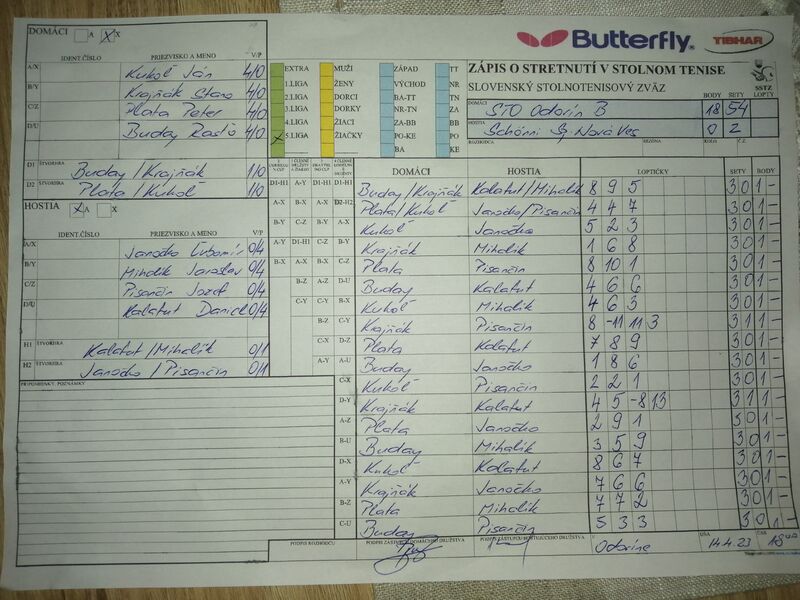 DOMÁCI A X
Butterfly. TIBHAR
IDENT.ČÍSLO PRIEZVISKO A MENO V/P
A/X Kukoľ Ján 4/0
B/Y Krajňák Stano 4/0
C/Z Plata Peter 4/0
D/U Buday Rasťo 4/0
D1 ŠTVORHRA Buday/Krajňák 1/0
D2 ŠTVORHRA Plata/Kukoľ 1/0
EXTRA MUŽI ZÁPAD TT
1.LIGA ŽENY VÝCHOD NR
2.LIGA DORCI BA-TT TN
3.LIGA DORKY NR-TN ZA
4.LIGA ŽIACI ZA-BB BB
5.LIGA ŽIAČKY PO-KE PO
BA KE
ZÁPIS O STRETNUTÍ V STOLNOM TENISE
SLOVENSKÝ STOLNOTENISOVÝ ZVÄZ SSTZ
BODY SETY LOPTY
DOMÁCI STO Odorín B 18 54
HOSTIA Schönni Sp. Nová Ves 0 2
ROZHODCA SEZÓNA KOLO Č.Z.
HOSTIA A X
IDENT.ČÍSLO PRIEZVISKO A MENO V/P
A/X Janočko Ľubomír 0/4
B/Y Mihalik Jaroslav 0/4
C/Z Pisančin Jozef 0/4
D/U Kalafut Daniel 0/4
H1 ŠTVORHRA Kalafut/Mihalik 0/1
H2 ŠTVORHRA Janočko/Pisančin 0/1
PRIPOMIENKY, POZNÁMKY
DOMÁCI HOSTIA LOPTIČKY SETY BODY
D1-H1 Buday/Krajňák Kalafut/Mihalik 8 9 5 3 0 1 -
D2-H2 Plata/Kukoľ Janočko/Pisančin 4 4 7 3 0 1 -
A-X Kukoľ Janočko 5 2 3 3 0 1 -
B-Y Krajňák Mihalik 1 6 8 3 0 1 -
C-Z Plata Pisančin 8 10 1 3 0 1 -
D-U Buday Kalafut 4 6 6 3 0 1 -
A-Y Kukoľ Mihalik 4 6 3 3 0 1 -
B-Z Krajňák Pisančin 8 -11 11 3 3 1 1 -
C-U Plata Kalafut 7 8 9 3 0 1 -
D-X Buday Janočko 1 8 6 3 0 1 -
Kukoľ Pisančin 2 2 1 3 0 1 -
Krajňák Kalafut 4 5 -8 13 3 1 1 -
Plata Janočko 2 9 1 3 0 1 -
Buday Mihalik 3 5 9 3 0 1 -
Kukoľ Kalafut 8 6 7 3 0 1 -
Krajňák Janočko 7 6 6 3 0 1 -
Plata Mihalik 7 7 2 3 0 1 -
C-U Buday Pisančin 5 3 3 3 0 1 -
PODPIS ROZHODCU PODPIS ZÁSTUPCU DOMÁCEHO DRUŽSTVA PODPIS ZÁSTUPCU HOSŤUJÚCEHO DRUŽSTVA Odoríne DŇA 14.4.23 ČAS 18 00